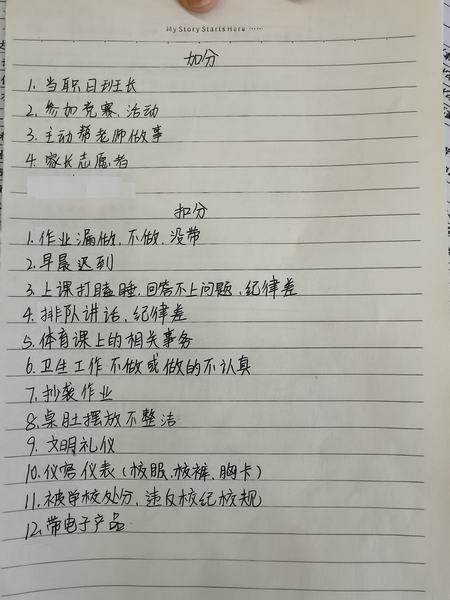 My Story Starts Here ······
加分
1. 当职日班长
2. 参加竞赛、活动
3. 主动帮老师做事
4. 家长志愿者
扣分
1. 作业漏做、不做、没带
2. 早晨迟到
3. 上课打瞌睡、回答不上问题、纪律差
4. 排队讲话、纪律差
5. 体育课上的相关事务
6. 卫生工作不做或做的不认真
7. 抄袭作业
8. 桌肚摆放不整洁
9. 文明礼仪
10. 仪容仪表（校服、校裤、胸卡）
11. 被学校处分，违反校纪校规
12. 带电子产品